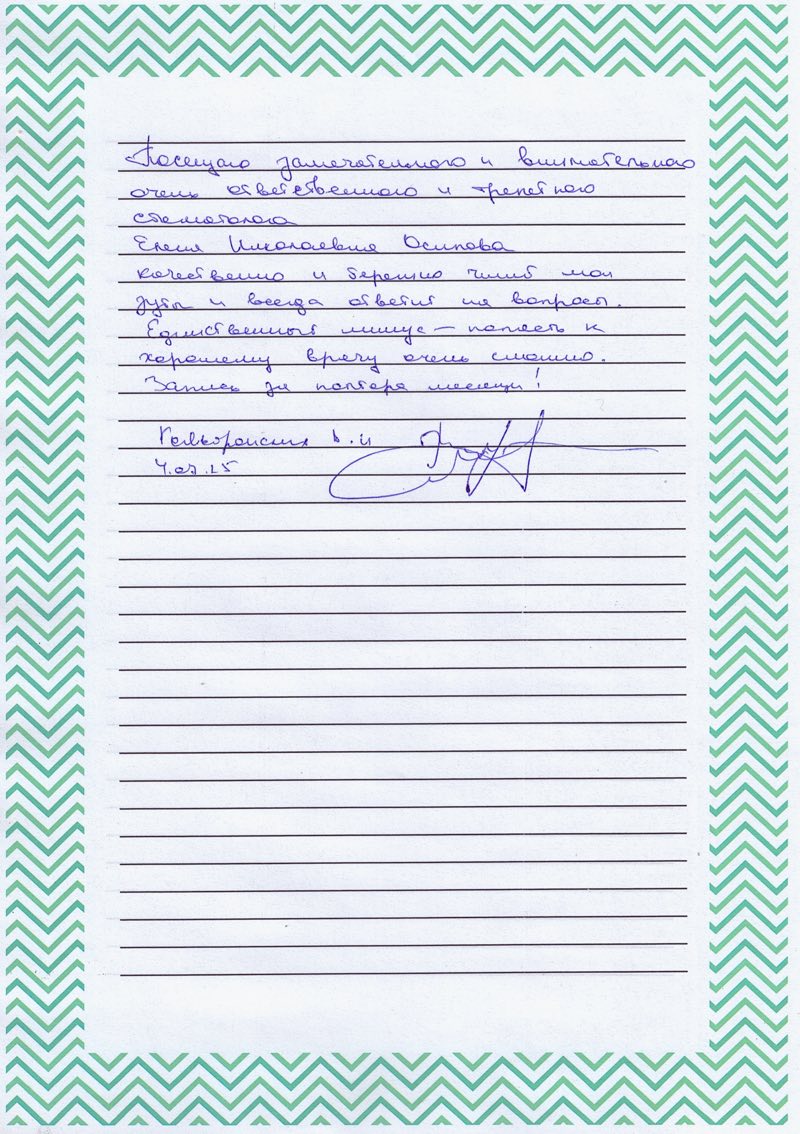 Посещаю замечательного и внимательного
очень ответственного и трепетного
стоматолога
Елена Николаевна Осипова
качественно и бережно чинит мои
зубы и всегда ответит на вопросы.
Единственный минус – попасть к
хорошему врачу очень сложно.
Запись за полтора месяца!
В.И
4.07.25